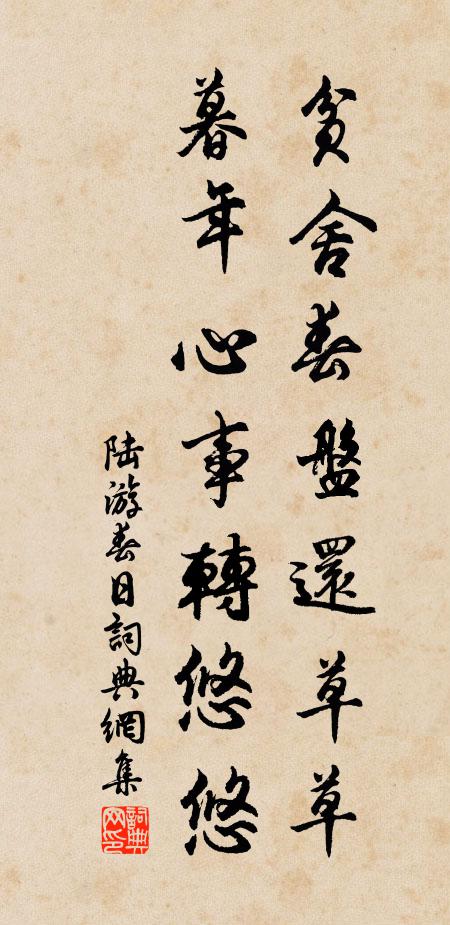 貧舍春盤還草草
暮年心事轉悠悠
陸游春日詞典網集
詞典網印